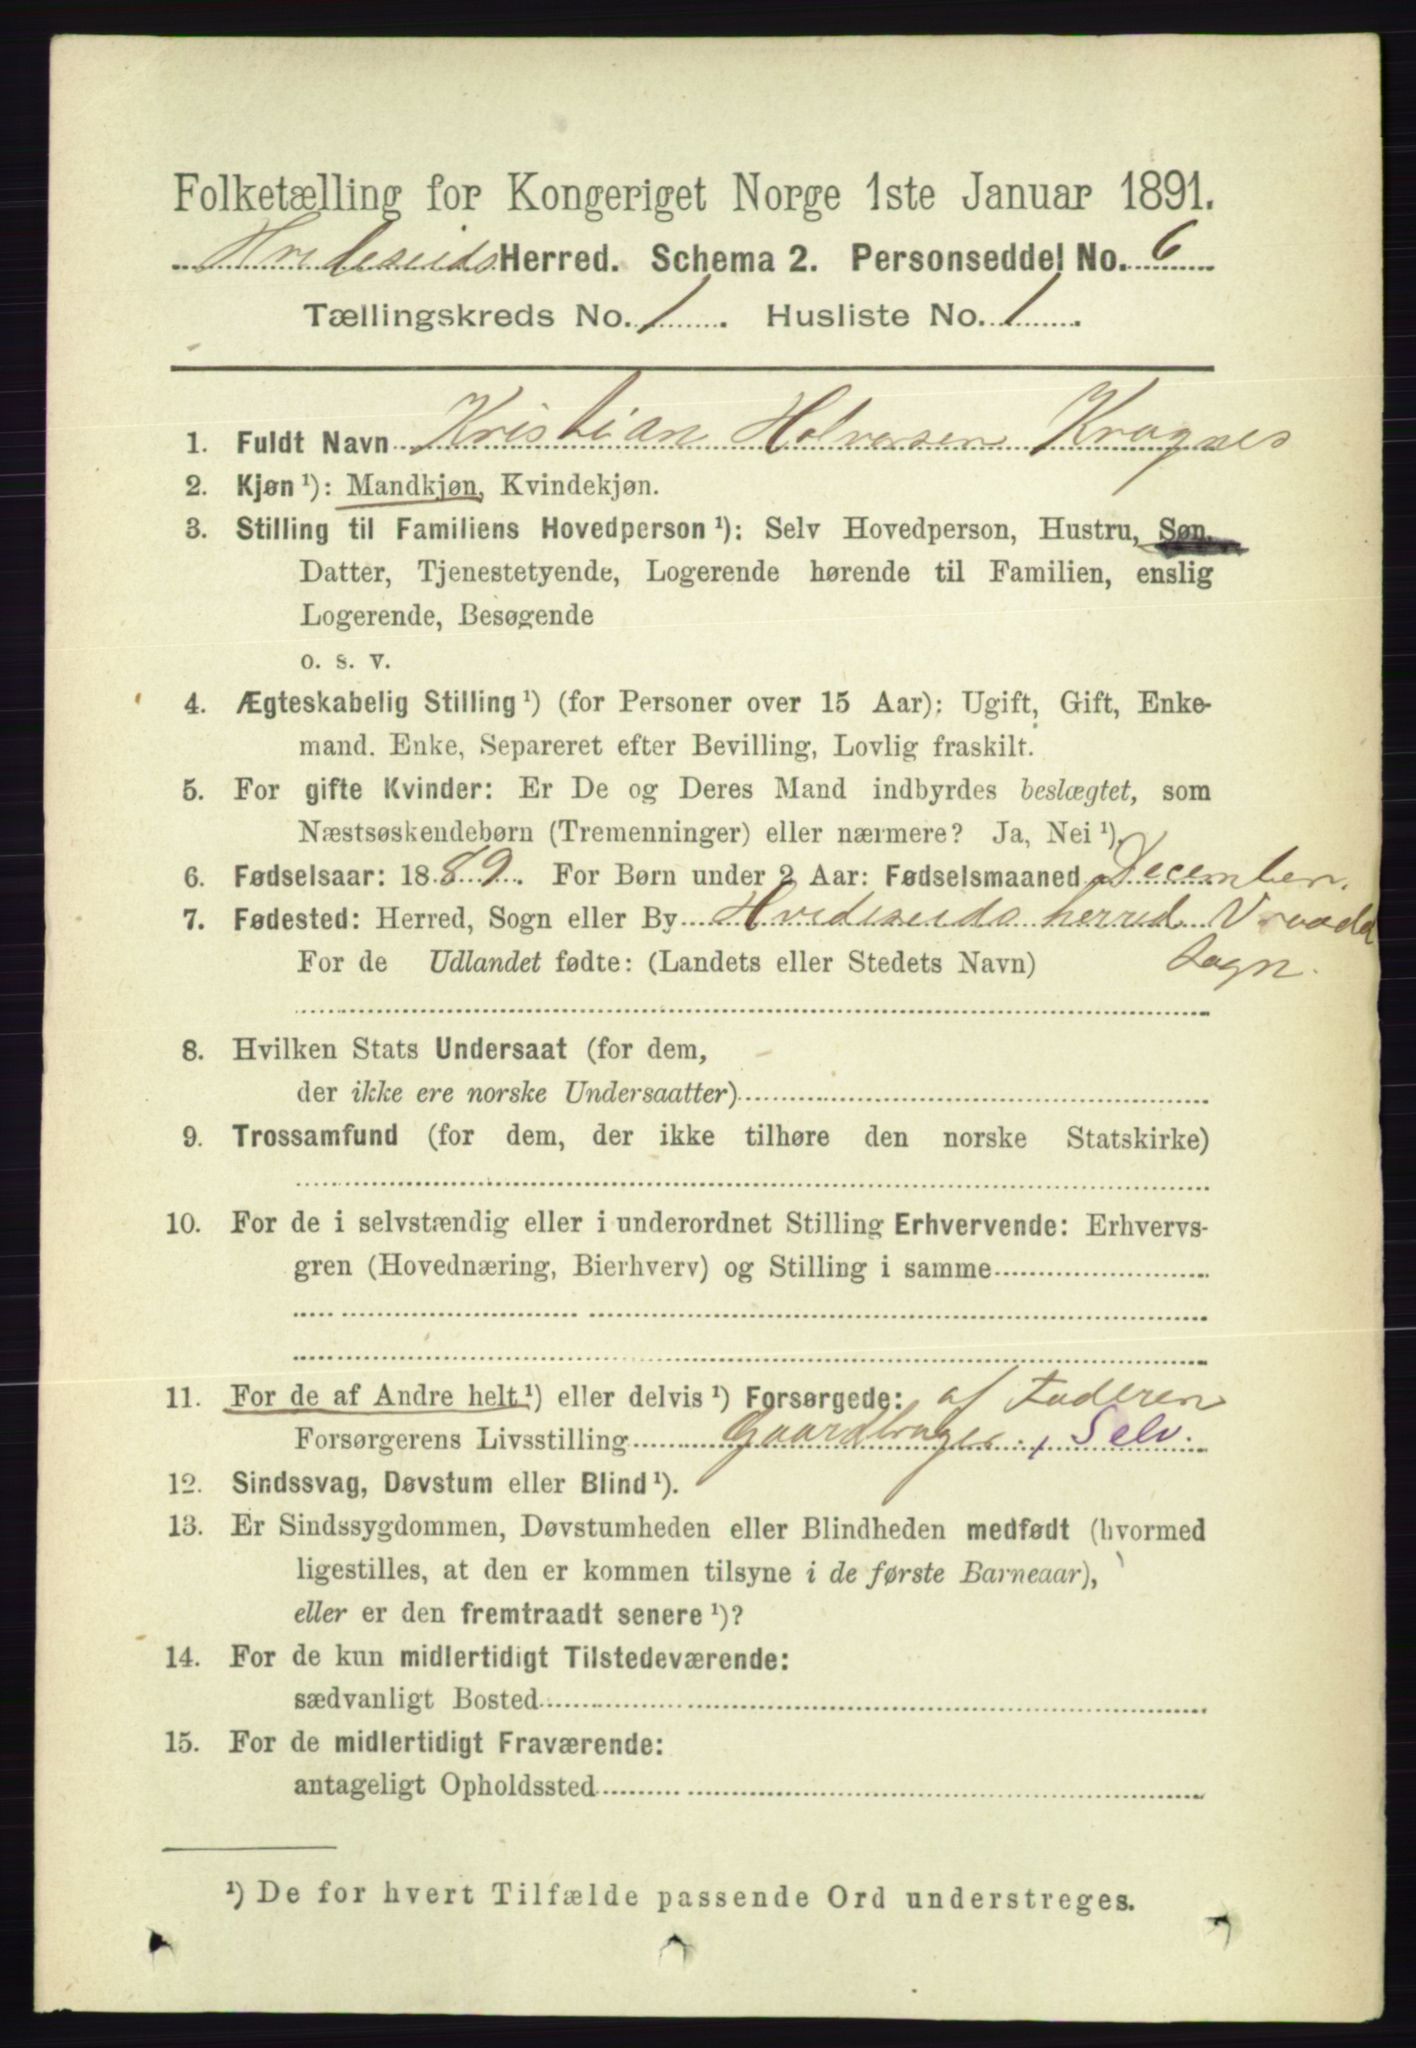 Folketælling for Kongeriget Norge 1ste Januar 1891.
Hvideseids Herred. Schema 2. Personseddel No. 6
Tællingskreds No. 1. Husliste No. 1.
1. Fuldt Navn Kristian Halvorsen Kragnes
2. Kjøn ¹): Mandkjøn, Kvindekjøn.
3. Stilling til Familiens Hovedperson ¹): Selv Hovedperson, Hustru, Søn,
Datter, Tjenestetyende, Logerende hørende til Familien, enslig
Logerende, Besøgende
o. s. v.
4. Ægteskabelig Stilling ¹) (for Personer over 15 Aar): Ugift, Gift, Enke-
mand. Enke, Separeret efter Bevilling, Lovlig fraskilt.
5. For gifte Kvinder: Er De og Deres Mand indbyrdes beslægtet, som
Næstsøskendebørn (Tremenninger) eller nærmere? Ja, Nei ¹),
6. Fødselsaar: 1889. For Børn under 2 Aar: Fødselsmaaned December.
7. Fødested: Herred, Sogn eller By Hvideseids herred Vraadal
For de Udlandet fødte: (Landets eller Stedets Navn) Sogn.
8. Hvilken Stats Undersaat (for dem,
der ikke ere norske Undersaatter)
9. Trossamfund (for dem, der ikke tilhøre den norske Statskirke)
10. For de i selvstændig eller i underordnet Stilling Erhvervende: Erhvervs-
gren (Hovednæring, Bierhverv) og Stilling i samme
11. For de af Andre helt ¹) eller delvis ¹) Forsørgede: af Faderen
Forsørgerens Livsstilling Gaardbruger, Selv.
12. Sindssvag, Døvstum eller Blind ¹).
13. Er Sindssygdommen, Døvstumheden eller Blindheden medfødt (hvormed
ligestilles, at den er kommen tilsyne i de første Barneaar),
eller er den fremtraadt senere ¹)?
14. For de kun midlertidigt Tilstedeværende:
sædvanligt Bosted
15. For de midlertidigt Fraværende:
antageligt Opholdssted
¹) De for hvert Tilfælde passende Ord understreges.